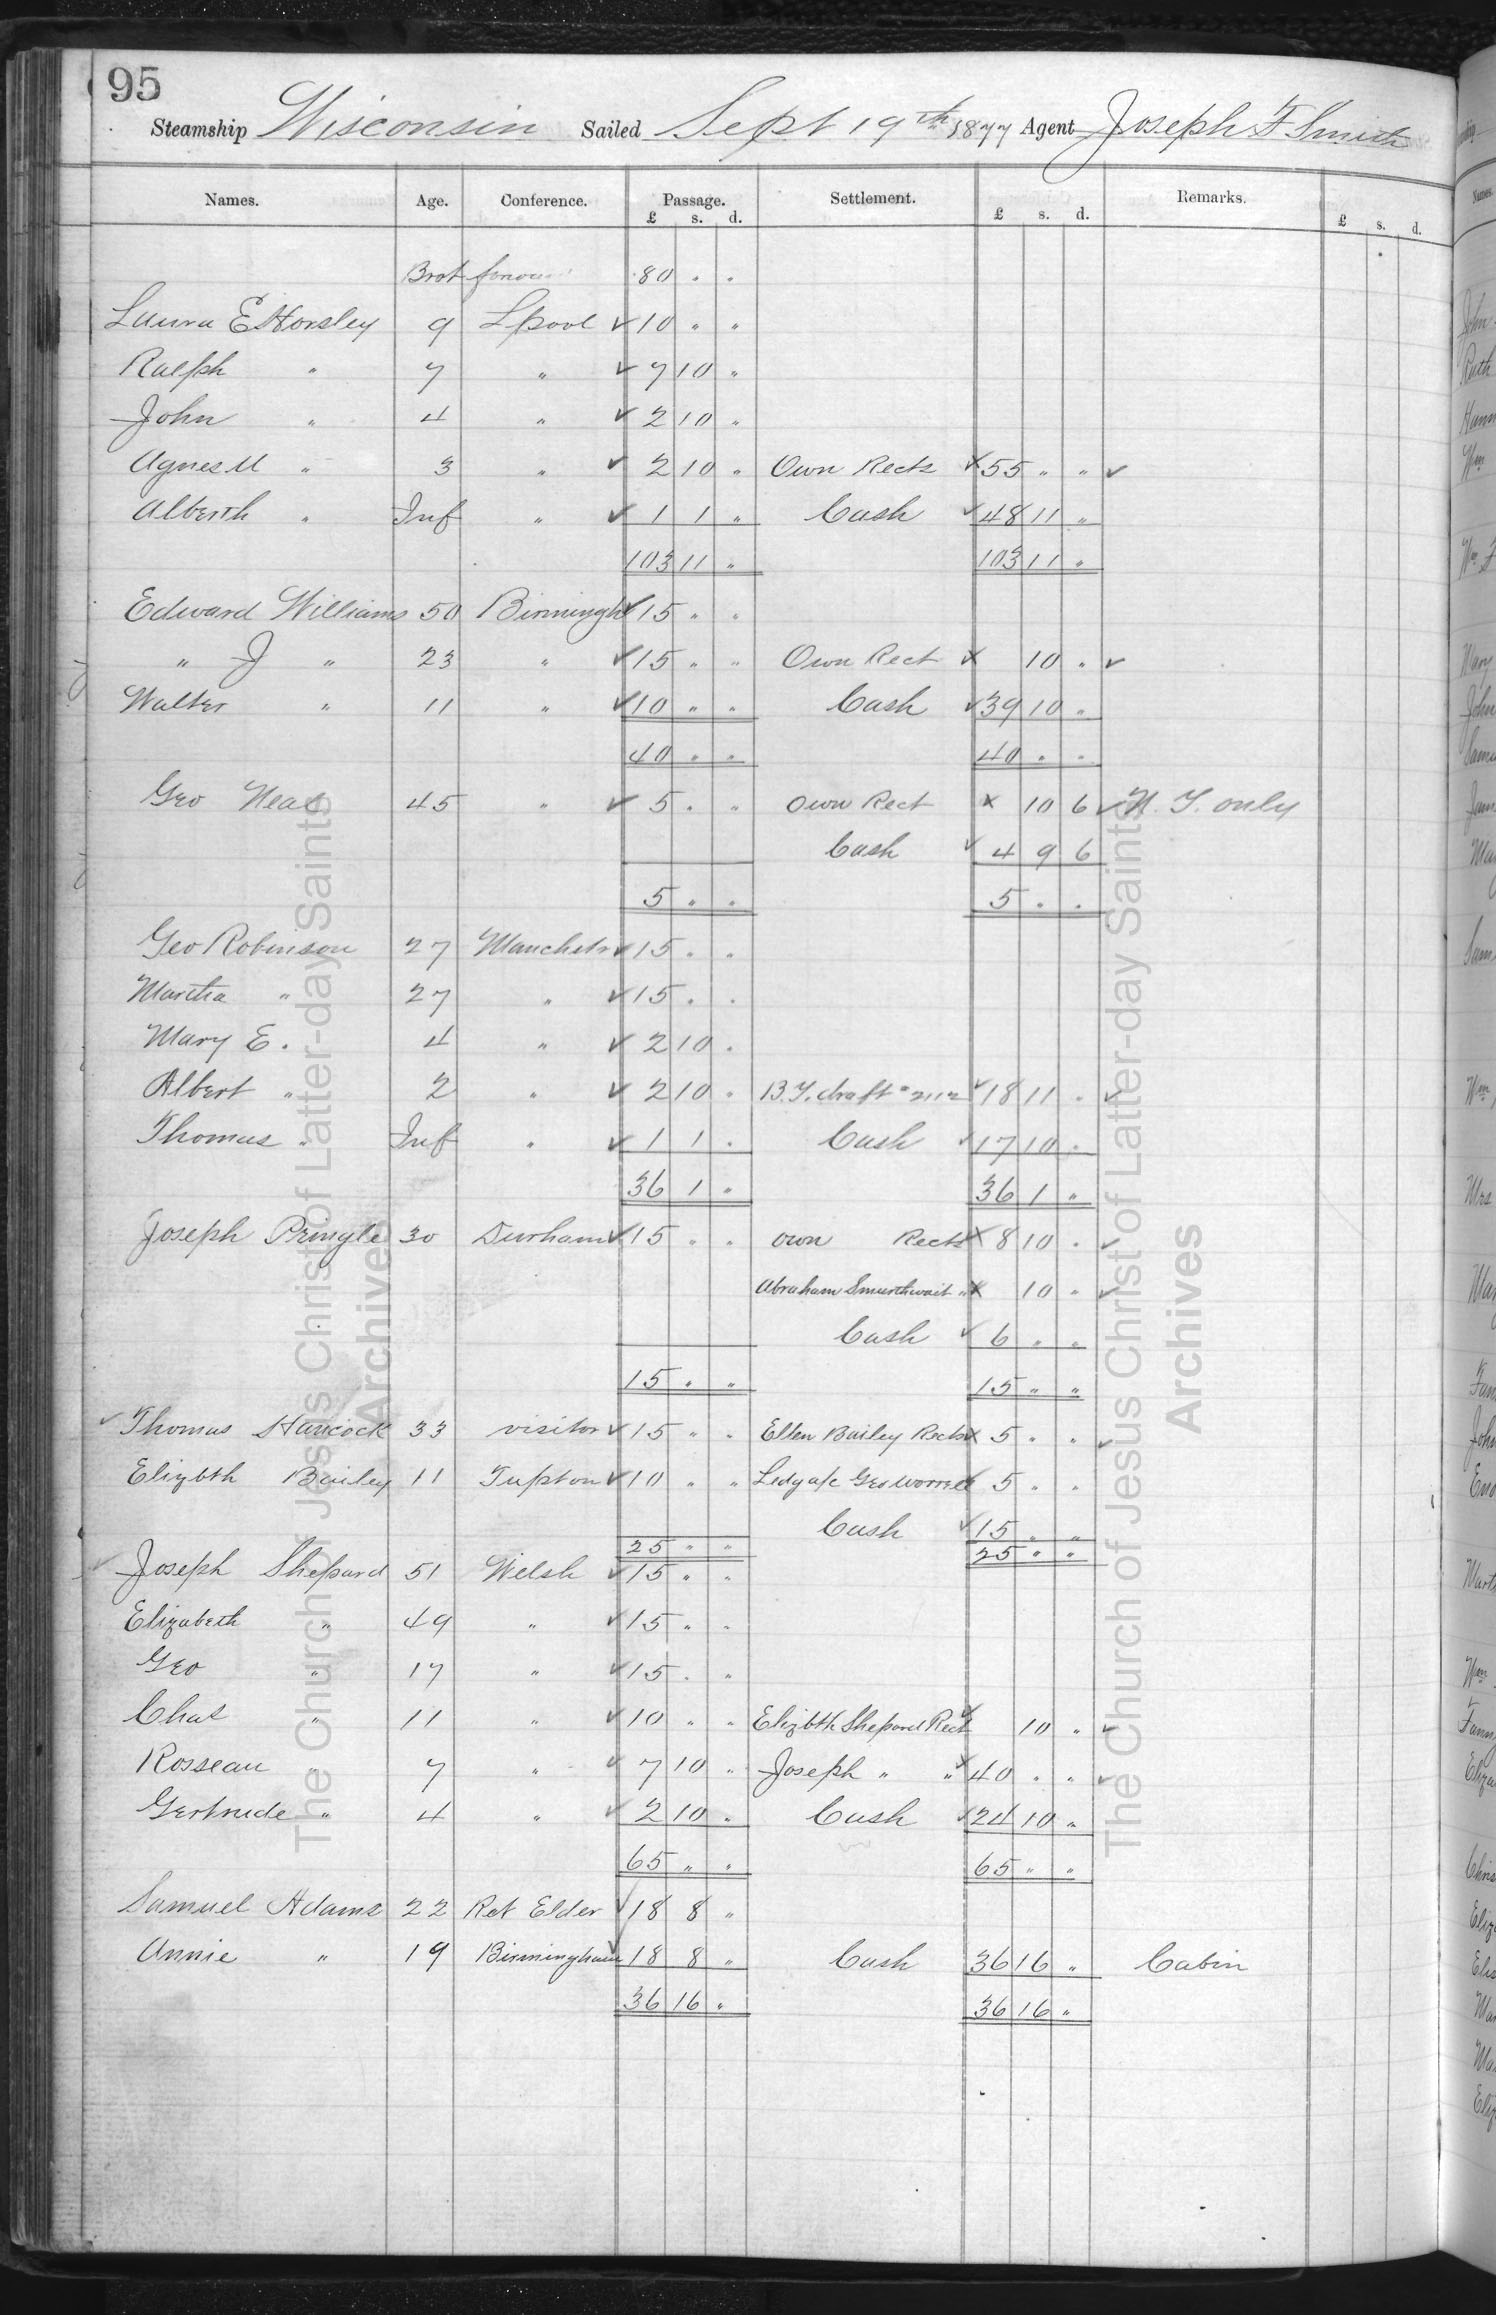 95
Steamship Wisconsin Sailed Sept 19th 1877 Agent Joseph F Smith
Names. Age. Conference. Passage. Settlement. Remarks.
£ s. d. £ s. d. £ s. d.
Brot forward 80 " "
Laura E Horsley 9 Lpool ✓ 10 " "
Ralph " 7 " ✓ 7 10 "
John " 4 " ✓ 2 10 "
Agnes M " 3 " ✓ 2 10 " Own Rects X 55 " " ✓
Alberth " Inf " ✓ 1 1 " Cash ✓ 48 11 "
103 11 " 103 11 "
Edward Williams 50 Birmingh ✓ 15 " "
" J " 23 " ✓ 15 " " Own Rect X 10 " ✓
Walter " 11 " ✓ 10 " " Cash ✓ 39 10 "
40 " " 40 " "
Geo Neal 45 " ✓ 5 " " Own Rect X 10 6 ✓ N. Y. only
Cash ✓ 4 9 6
5 " " 5 " "
Geo Robinson 27 Manchstr ✓ 15 " "
Martha " 27 " ✓ 15 " "
Mary E. 4 " ✓ 2 10 "
Albert " 2 " ✓ 2 10 " B.Y. draft # 2112 ✓ 18 11 " ✓
Thomas " Inf " ✓ 1 1 " Cash ✓ 17 10 "
36 1 " 36 1 "
Joseph Pringle 30 Durham ✓ 15 " " own Rects X 8 10 " ✓
Abraham Smurthwait " X 10 " ✓
Cash ✓ 6 " "
15 " " 15 " "
✓ Thomas Hancock 33 visitor ✓ 15 " " Ellen Bailey Rects X 5 " " ✓
Elizbth Bailey 11 Tupton ✓ 10 " " Ledg a/c Geo Worrell ✓ 5 " "
Cash ✓ 15 " "
25 " " 25 " "
✓ Joseph Shepard 51 Welsh ✓ 15 " "
Elizabeth " 49 " ✓ 15 " "
Geo " 17 " ✓ 15 " "
Chas " 11 " ✓ 10 " " Elizbth Shepard Rect X 10 " ✓
Rosseau " 7 " ✓ 7 10 " Joseph " " X 40 " " ✓
Gertrude " 4 " ✓ 2 10 " Cash ✓ 24 10 "
65 " " 65 " "
Samuel Adams 22 Ret Elder ✓ 18 8 "
Annie " 19 Birmingham ✓ 18 8 " Cash 36 16 " Cabin
36 16 " 36 16 "
The Church of Jesus Christ of Latter-day Saints
Archives
The Church of Jesus Christ of Latter-day Saints
Archives